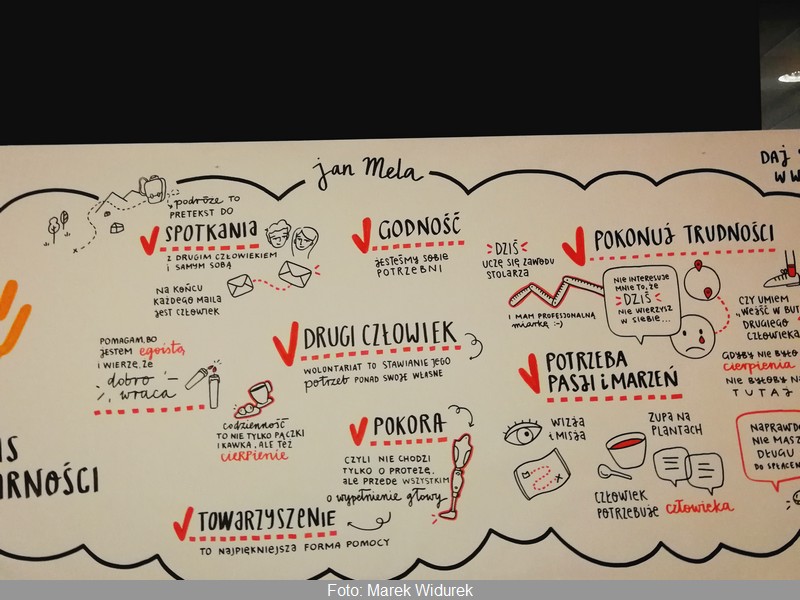 jan Mela
DAJ
WW
podróże TO
PRETEKST DO
SPOTKANIA
Z DRUGIM CZŁOWIEKIEM
I SAMYM SOBĄ
NA KOŃCU
KAŻDEGO MAILA
JEST CZŁOWIEK
GODNOŚĆ
JESTEŚMY SOBIE
POTRZEBNI
DZIŚ
UCZĘ SIĘ ZAWODU
STOLARZA
I MAM PROFESJONALNĄ
miarkę :-)
POKONUJ TRUDNOŚCI
NIE INTERESUJE
MNIE TO, ŻE
DZIŚ
NIE WIERZYSZ
W SIEBIE...
CZY UMIEM
"WEJŚĆ W BUT
DRUGIEGO
CZŁOWIEKA
GDYBY NIE BYŁO
cierpienia
NIE BYŁOBY
TUTAJ
POMAGAM, BO
JESTEM egoistą
I WIERZĘ, ŻE
dobro
wraca
DRUGI CZŁOWIEK
WOLONTARIAT TO STAWIANIE JEGO
potrzeb PONAD SWOJE WŁASNE
POTRZEBA
PASJI i MARZEŃ
codzienność
TO NIE TYLKO PĄCZKI
I KAWKA, ALE TEŻ
cierpienie
POKORA
CZYLI NIE CHODZI
TYLKO O PROTEZĘ,
ALE PRZEDE WSZYSTKIM
o wypełnienie głowy
WIZJA
i MISJA
ZUPA NA
PLANTACH
CZŁOWIEK
POTRZEBUJE człowieka
NAPRAWD
NIE MASZ
DŁUGU
DO SPŁACEN
IS
ARNOŚCI
TOWARZYSZENIE
TO NAJPIĘKNIEJSZA FORMA POMOCY
Foto: Marek Widurek